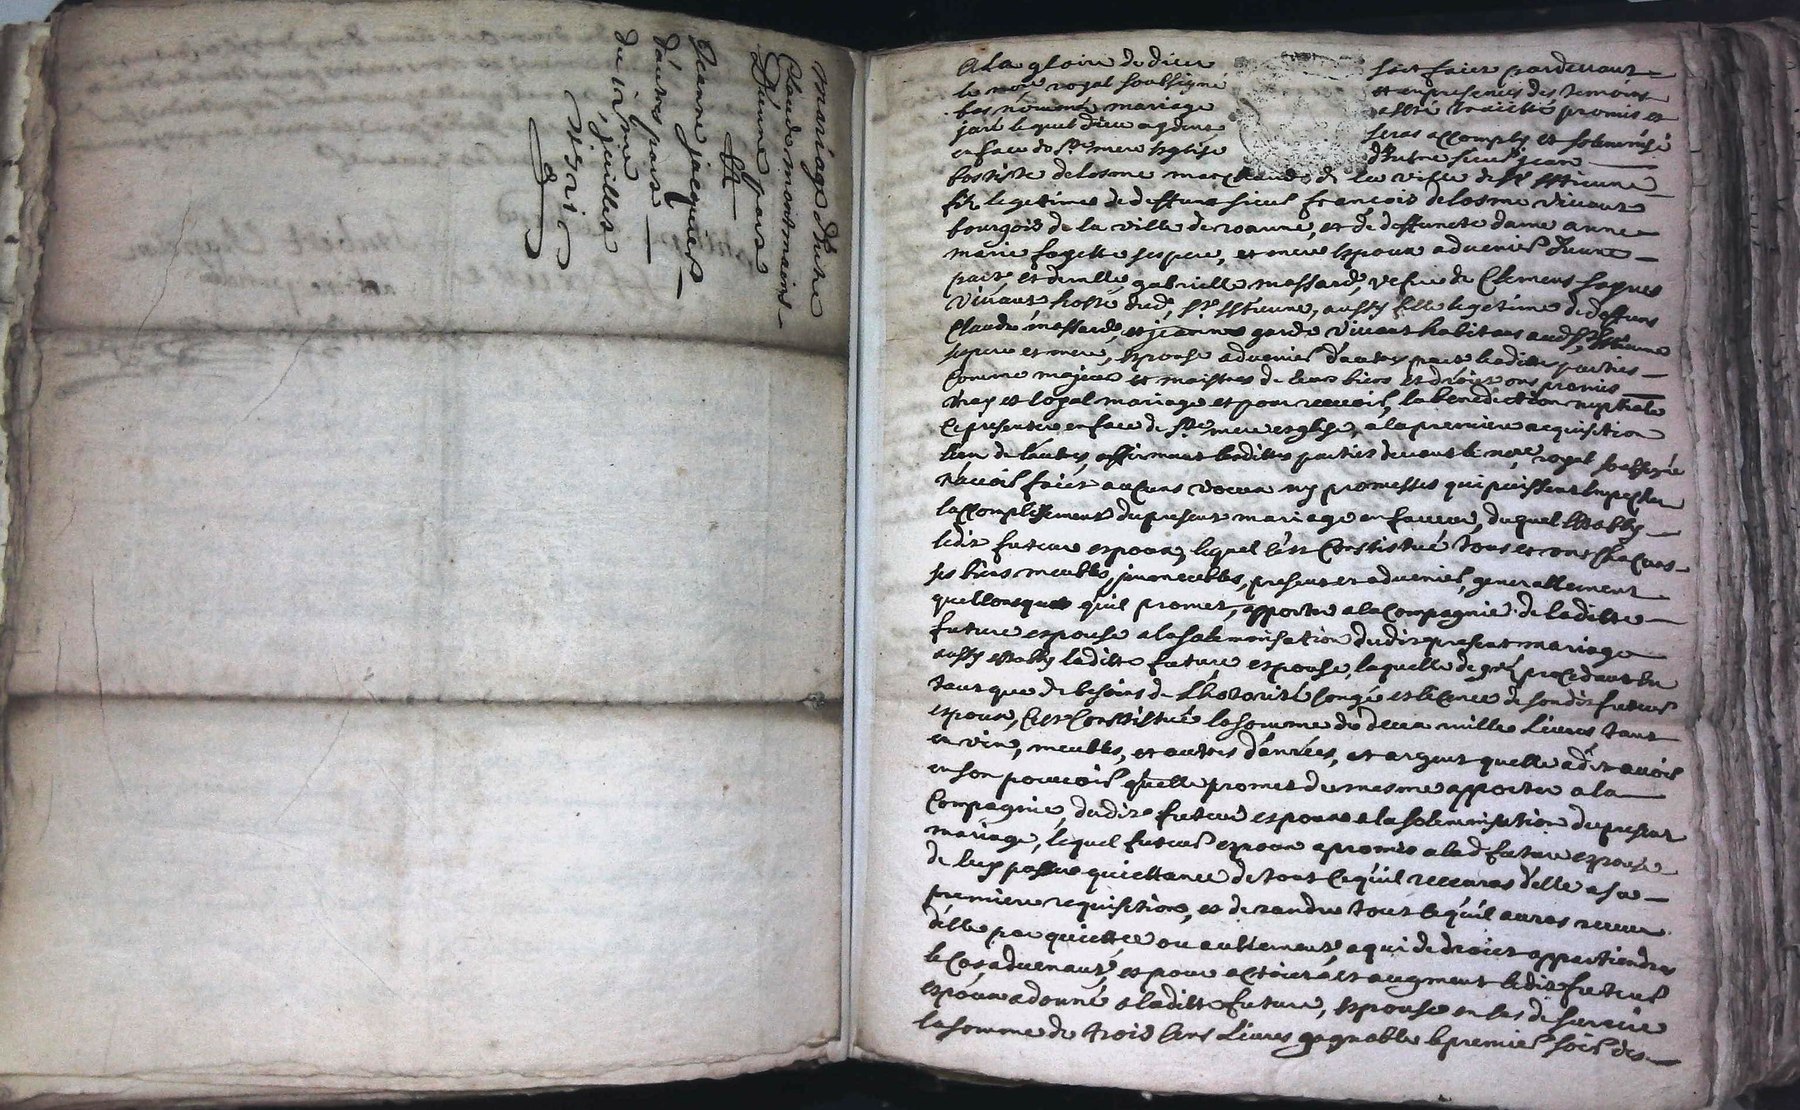 mariage d'entre
Claude montmains
D'une part
Et
Jeanne jacquier
d'autre part
du 12me
juillet
A la gloire de dieu soit faict pardevant
le nore royal soubsigné et en presence des temoins
bas nommé mariage a esté traicté promis et
jaré lequel dieu aydant seras accomply et solemnisé
en face de Ste mere Esglise d'Entre sieur jean
bastiste delosme marchand de la ville de St Estienne
fils legitime de deffunt sieur francois delosme vivant
bourgois de la ville de roanne, et de deffuncte dame anne
marie fayette ses pere, et mere Espoux advenir d'une
part, et demlle gabrielle massard, vefve de Clemens
vivant hoste dud. St Estienne, aussy fille legitime de deffuns
Claude massard, et jeanne garde vivant habitans aud. St Estienne
ses pere et mere, Espouse advenir d'autre part lesdittes parties
comme majeur et maistres de leurs biens et droict ons promis
vray et loyal mariage et pour recevoir, la benediction nuptiale
ce presenter en face de Ste mere esglise, a la premiere requisition
l'un de l'autre, affirmant lesdittes parties devant le nore royal soubsigné
n'avoir faict aucuns voeux ny promesses qui puissent empecher
l'accomplissement du present mariage en faveur, duquel Estably
ledit future espoux, lequel c'est Constistué tous et uns chacuns
ses biens meubles, jmmeubles, present et advenir, generallement
quelconques quil promet, apporter a la Compagnie de laditte
future espouse a la solemnisation dudit present mariage
aussy estably laditte future espouse, laquelle de gré procedant en
tant que de besoins de l'hotorité congé et licence de sondit futur
espoux, c'est Constistué la somme de deux mille Livres tant
en vin, meubles, et autres danrées, et argent quelle a dit avoir
en son pouvoir quelle promet de mesme apporter a la
Compagnie, dudit futur espoux a la solemnisation du present
mariage, lequel futur espoux a promis a lad. future espouse
de luy passer quictance de tout ce quil receuras d'elle a sa
premiere requisition, et de randre tout ce quil auras receu
d'elle par quictance ou aultrement, a qui de droict appartiendras
le Cas advenant, et pour accroict et augment ledit futur
espoux a donné a laditte future, Espouse en cas de survie
la somme de trois Cens Livres gagnable le premier soir des